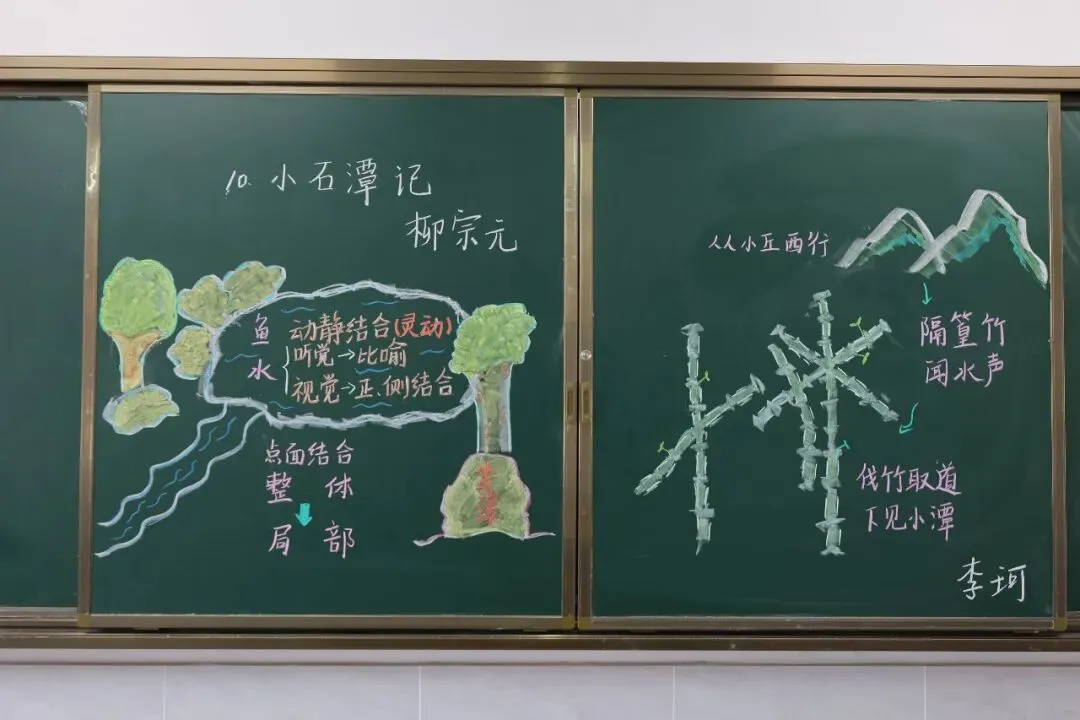 10. 小石潭记
柳宗元
鱼 动静结合(灵动)
水 听觉→比喻
视觉→正、侧结合
点面结合
整体
局部
从小丘西行
隔篁竹
闻水声
伐竹取道
下见小潭
李珂